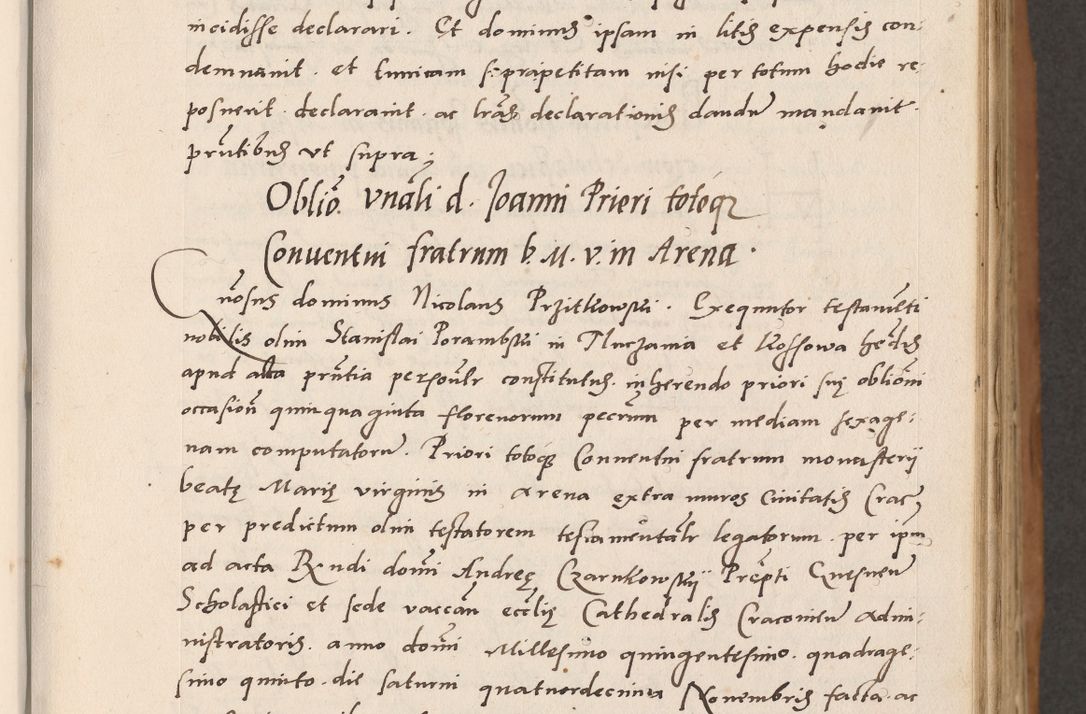 incidisse declarari. Et dominus ipsam in litis expensis con:
demnauit. et tunicam suprapetitam nisi per totum hodie re:
posuerit. declarauit. ac lr̃as declarationis dandũ mandauit.
prñtibus vt supra;
Obliõ. Vnãli d. Joanni Prieri totoqʒ
Conuentui fratrum b. M. v. in Arena.
nõsus dominus Nicolaus Przitkowski. Exequutor testamẽti
nobilis olim Stanislai Porambski in Thuczama et Kossowa herdis
apud acta prñtia persoñlr constitutus. inherendo priori suę obliõni
occasioñ quinquaginta florenorum pecũm per mediam sexage:
nam computatorũ. Priori totoqʒ Conuentui fratrum monasterij
beatę Marię virginis in Arena extra muros Ciuitatis Crac;
per predictum olim testatorem testamẽntalr legatorum. per ipm
ad acta Rñdi domĩ Andreę Czarnkowskij Prępti Gnesneñ
Scholastici et sede vaccañ eccłię Cathedralis Cracouieñ Admi:
nistratoris. anno domĩ Millesimo quingentesimo. quadrage:
simo quinto. die saturni quatuordecima Nouembris facta. ac